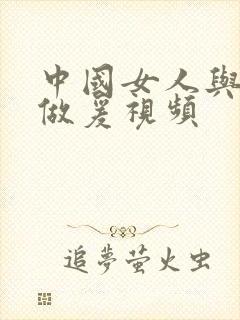 中國女人與
做爰視頻
追夢萤火虫